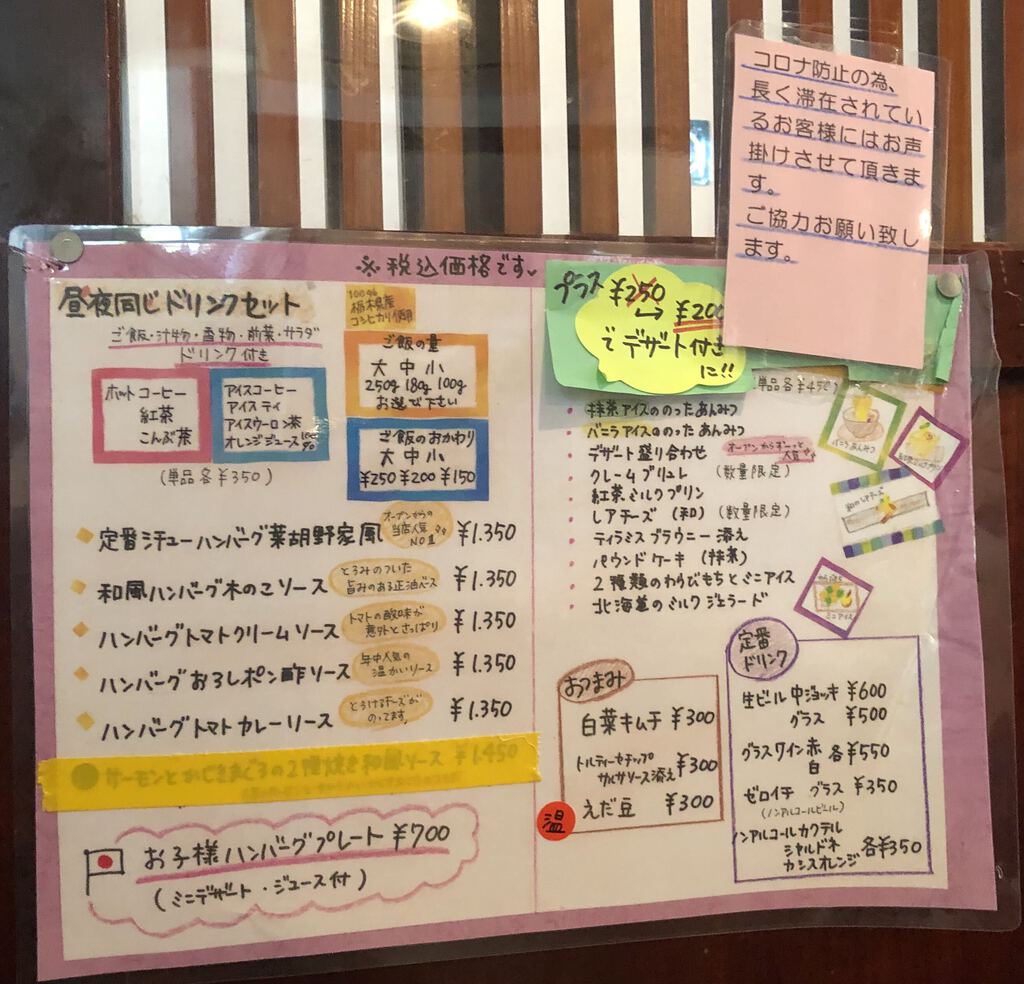 コロナ防止の為、
長く滞在されてい
るお客様にはお声
掛けさせて頂きま
す。
ご協力お願い致し
ます。
※税込価格です
昼夜同じドリンクセット
ご飯・汁物・香物・前菜・サラダ
ドリンク付き
ホットコーヒー
紅茶
こんぶ茶
アイスコーヒー
アイスティ
アイスウーロン茶
オレンジジュース100%
(単品各¥350)
100%
栃木県産
コシヒカリ使用
ご飯の量
大 中 小
250g 180g 100g
お選び下さい
ご飯のおかわり
大 中 小
¥250 ¥200 ¥150
定番シチューハンバーグ葉胡野家風 オープンからの当店人気NO1 ¥1.350
和風ハンバーグ木のこソース とろみのついた旨みのある正油ベース ¥1.350
ハンバーグトマトクリームソース トマトの酸味が意外とさっぱり ¥1.350
ハンバーグおろしポン酢ソース 年中人気の温かいソース ¥1.350
ハンバーグトマトカレーソース とろけるチーズがのってます。 ¥1.350
サーモンとかじきまぐろの2種焼き和風ソース ¥1.450
お子様ハンバーグプレート ¥700
(ミニデザート・ジュース付)
プラス ¥250
→ ¥200
でデザート付き
に!!
(単品各¥450)
抹茶アイスののったあんみつ
バニラアイスののったあんみつ
デザート盛り合わせ オープンからずーっと人気
クレームブリュレ (数量限定)
紅茶ミルクプリン
レアチーズ (和) (数量限定)
ティラミスブラウニー添え
パウンドケーキ (抹茶)
2種類のわらびもちとミニアイス
北海道のミルクジェラード
バニラあんみつ
ミニアイス
おつまみ
白菜キムチ ¥300
トルティーヤチップ
サルサソース添え ¥300
温 えだ豆 ¥300
定番
ドリンク
生ビール中ジョッキ ¥600
グラス ¥500
グラスワイン赤
白 各¥550
ゼロイチ グラス ¥350
(ノンアルコールビール)
ノンアルコールカクテル
シャルドネ
カシスオレンジ 各¥350